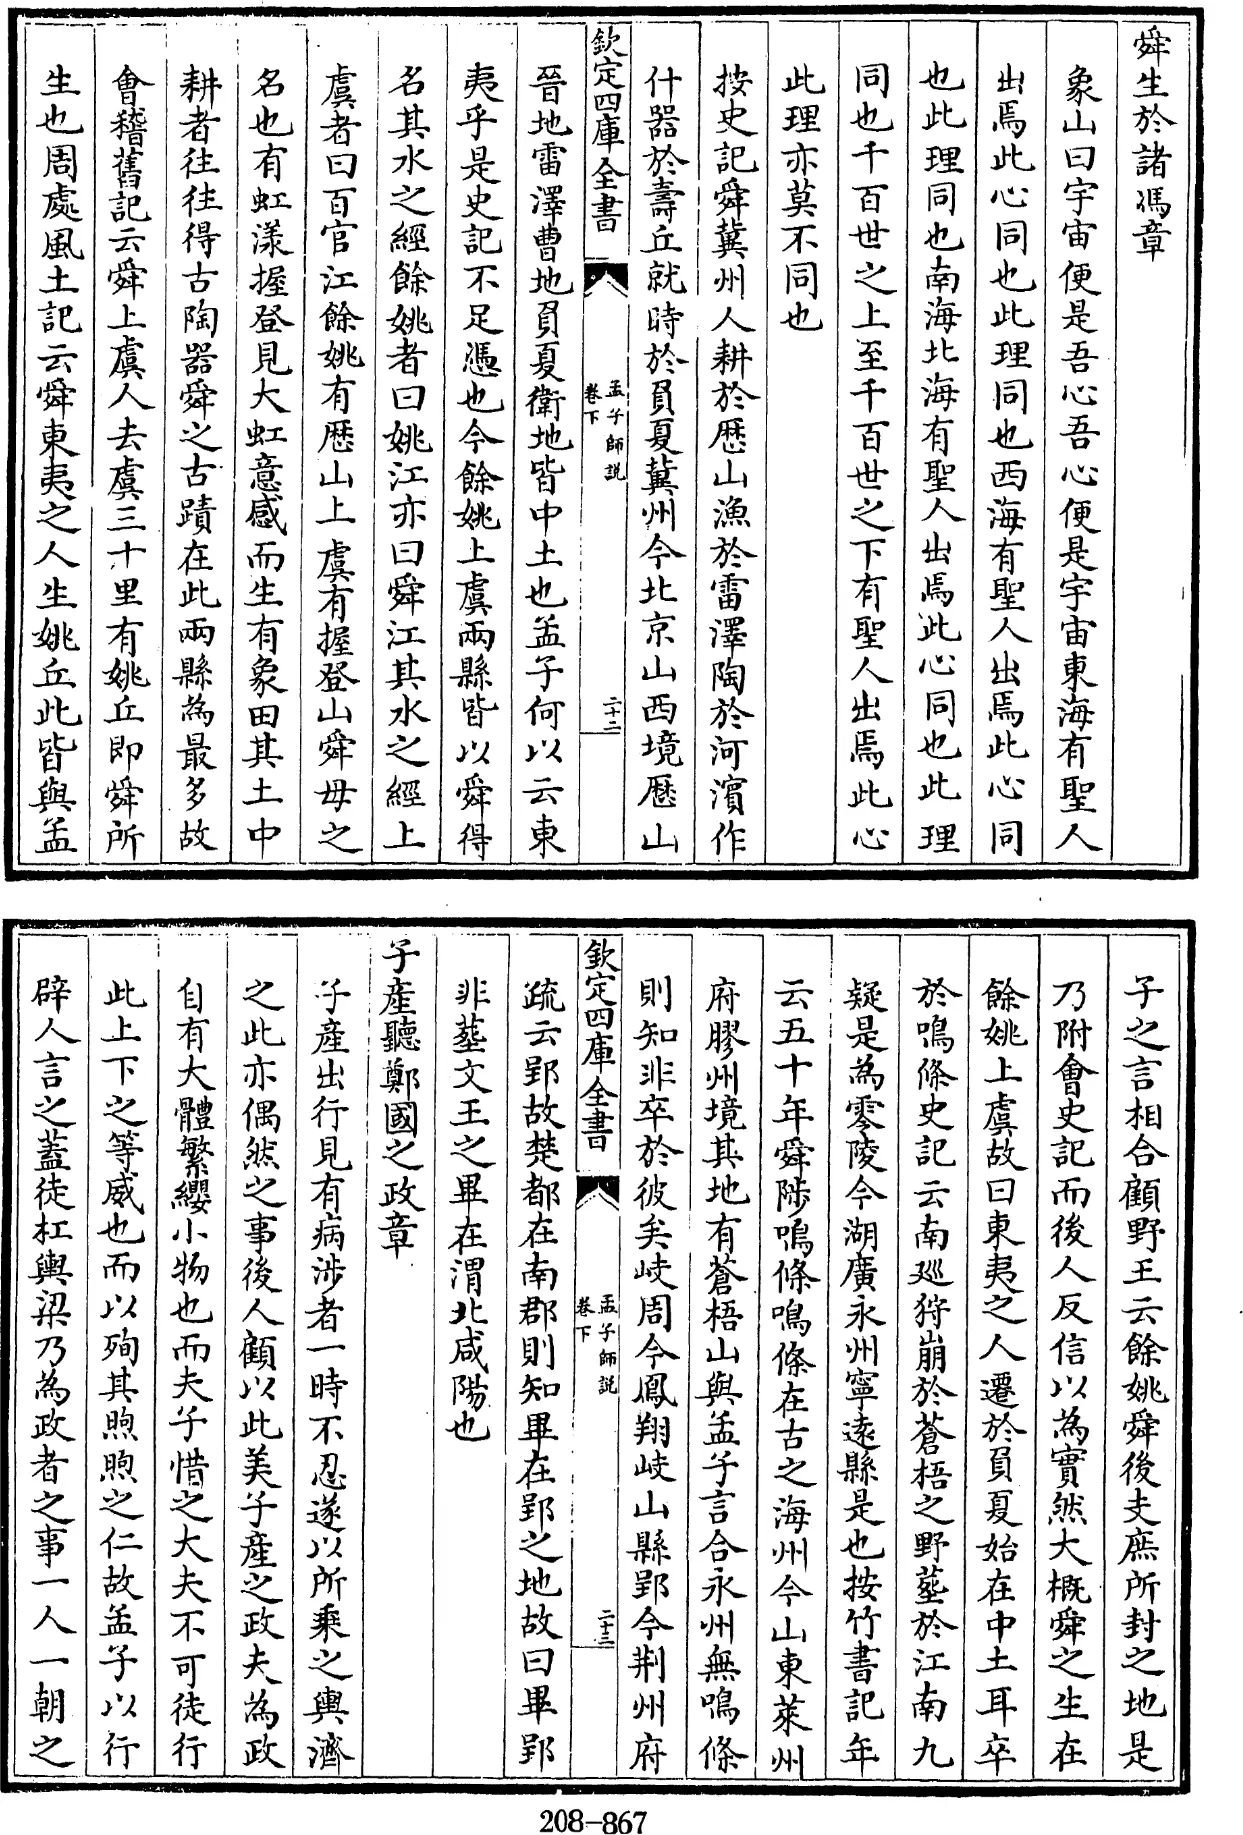 舜生於諸馮章
象山曰宇宙便是吾心吾心便是宇宙東海有聖人
出焉此心同也此理同也西海有聖人出焉此心同
也此理同也南海北海有聖人出焉此心同也此理
同也千百世之上至千百世之下有聖人出焉此心
此理亦莫不同也
按史記舜冀州人耕於歴山漁於雷澤陶於河濱作
什器於壽丘就時於負夏冀州今北京山西境歴山
欽定四庫全書
孟子師說
卷下
二十二
晉地雷澤曹地負夏衛地皆中土也孟子何以云東
夷乎是史記不足憑也今餘姚上虞兩縣皆以舜得
名其水之經餘姚者曰姚江亦曰舜江其水之經上
虞者曰百官江餘姚有歴山上虞有握登山舜母之
名也有虹漾握登見大虹意感而生有象田其土中
耕者往往得古陶器舜之古蹟在此兩縣為最多故
會稽舊記云舜上虞人去虞三十里有姚丘即舜所
生也周處風土記云舜東夷之人生姚丘此皆與孟
子之言相合顧野王云餘姚舜後支庶所封之地是
乃附會史記而後人反信以為實然大概舜之生在
餘姚上虞故曰東夷之人遷於負夏始在中土耳卒
於鳴條史記云南廵狩崩於蒼梧之野塟於江南九
疑是為零陵今湖廣永州寧遠縣是也按竹書記年
云五十年舜陟鳴條鳴條在古之海州今山東萊州
府膠州境其地有蒼梧山與孟子言合永州無鳴條
則知非卒於彼矣岐周今鳳翔岐山縣郢今荆州府
欽定四庫全書
孟子師說
卷下
二十三
疏云郢故楚都在南郡則知畢在郢之地故曰畢郢
非塟文王之畢在渭北咸陽也
子產聽鄭國之政章
子產出行見有病涉者一時不忍遂以所乘之輿濟
之此亦偶然之事後人顧以此美子產之政夫為政
自有大體繁纓小物也而夫子惜之大夫不可徒行
此上下之等威也而以殉其煦煦之仁故孟子以行
辟人言之蓋徒杠輿梁乃為政者之事一人一朝之
208-867